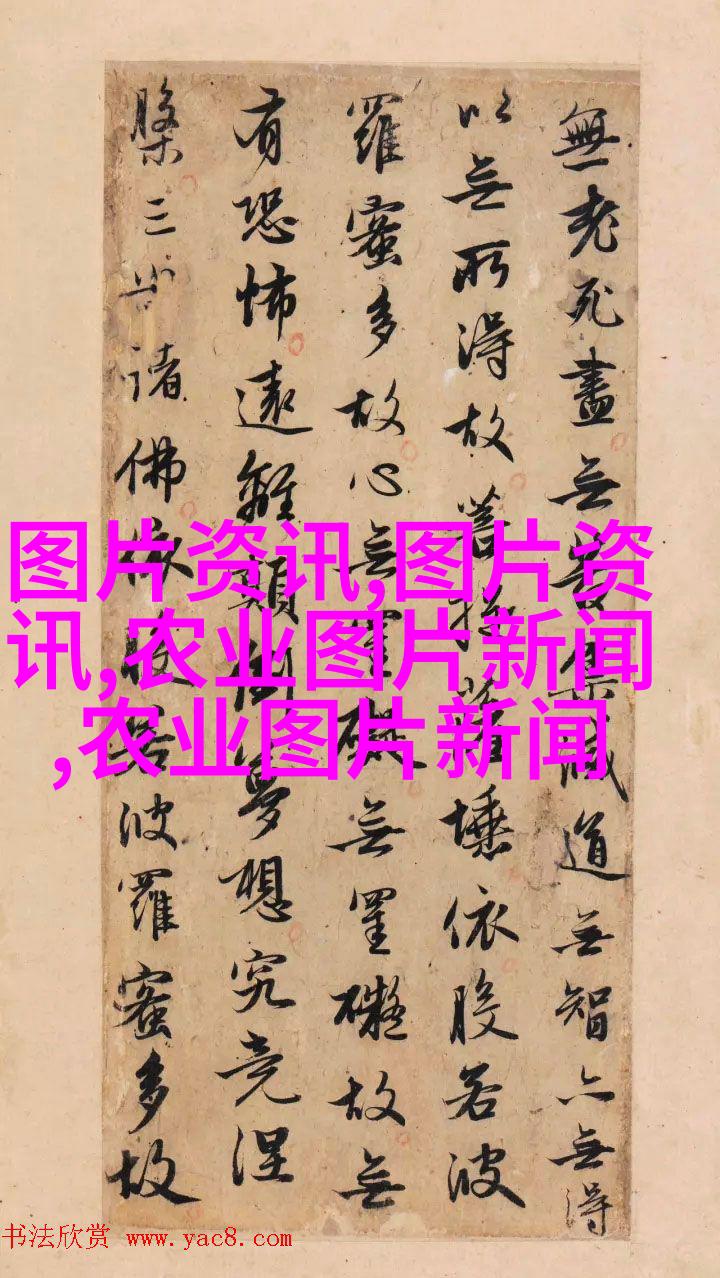 無老死盡无苦集滅道无智亦无得
以无所得故菩提薩埵依般若波
羅蜜多故心无罣礙无罣礙故无
有恐怖遠離顛倒夢想究竟涅
槃三世諸佛依般若波羅蜜多故
图片资讯,图片资
讯,农业图片新闻
,农业图片新闻
书法欣赏 www.yac8.com